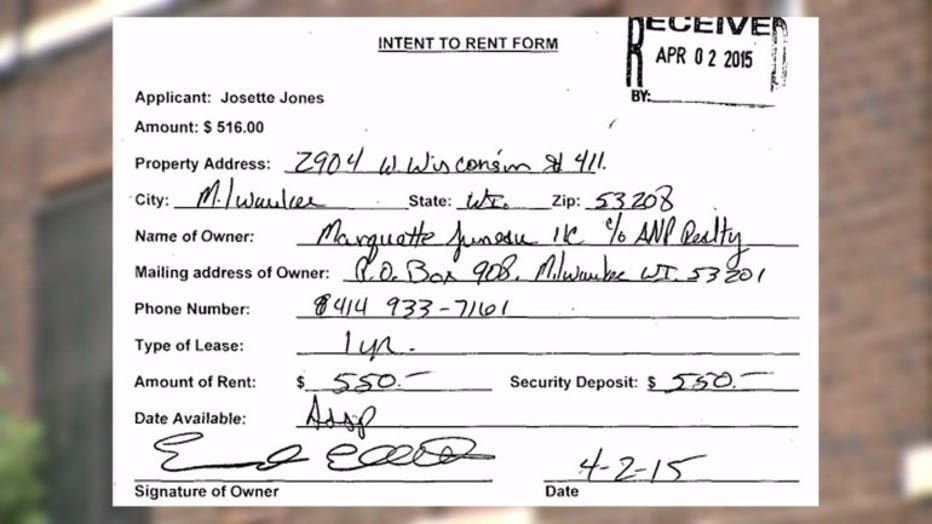 INTENT TO RENT FORM
RECEIVED
APR 02 2015
BY:
Applicant: Josette Jones
Amount: $ 516.00
Property Address: 2904 W. Wisconsin # 411.
City: Milwaukee State: WI. Zip: 53208
Name of Owner: Marquette Juneau LLC c/o ANP Realty
Mailing address of Owner: P.O. Box 908. Milwaukee WI. 53201
Phone Number: 414 933-7161
Type of Lease: 1 yr.
Amount of Rent: $ 550.— Security Deposit: $ 550.—
Date Available: Asap
4-2-15
Signature of Owner Date